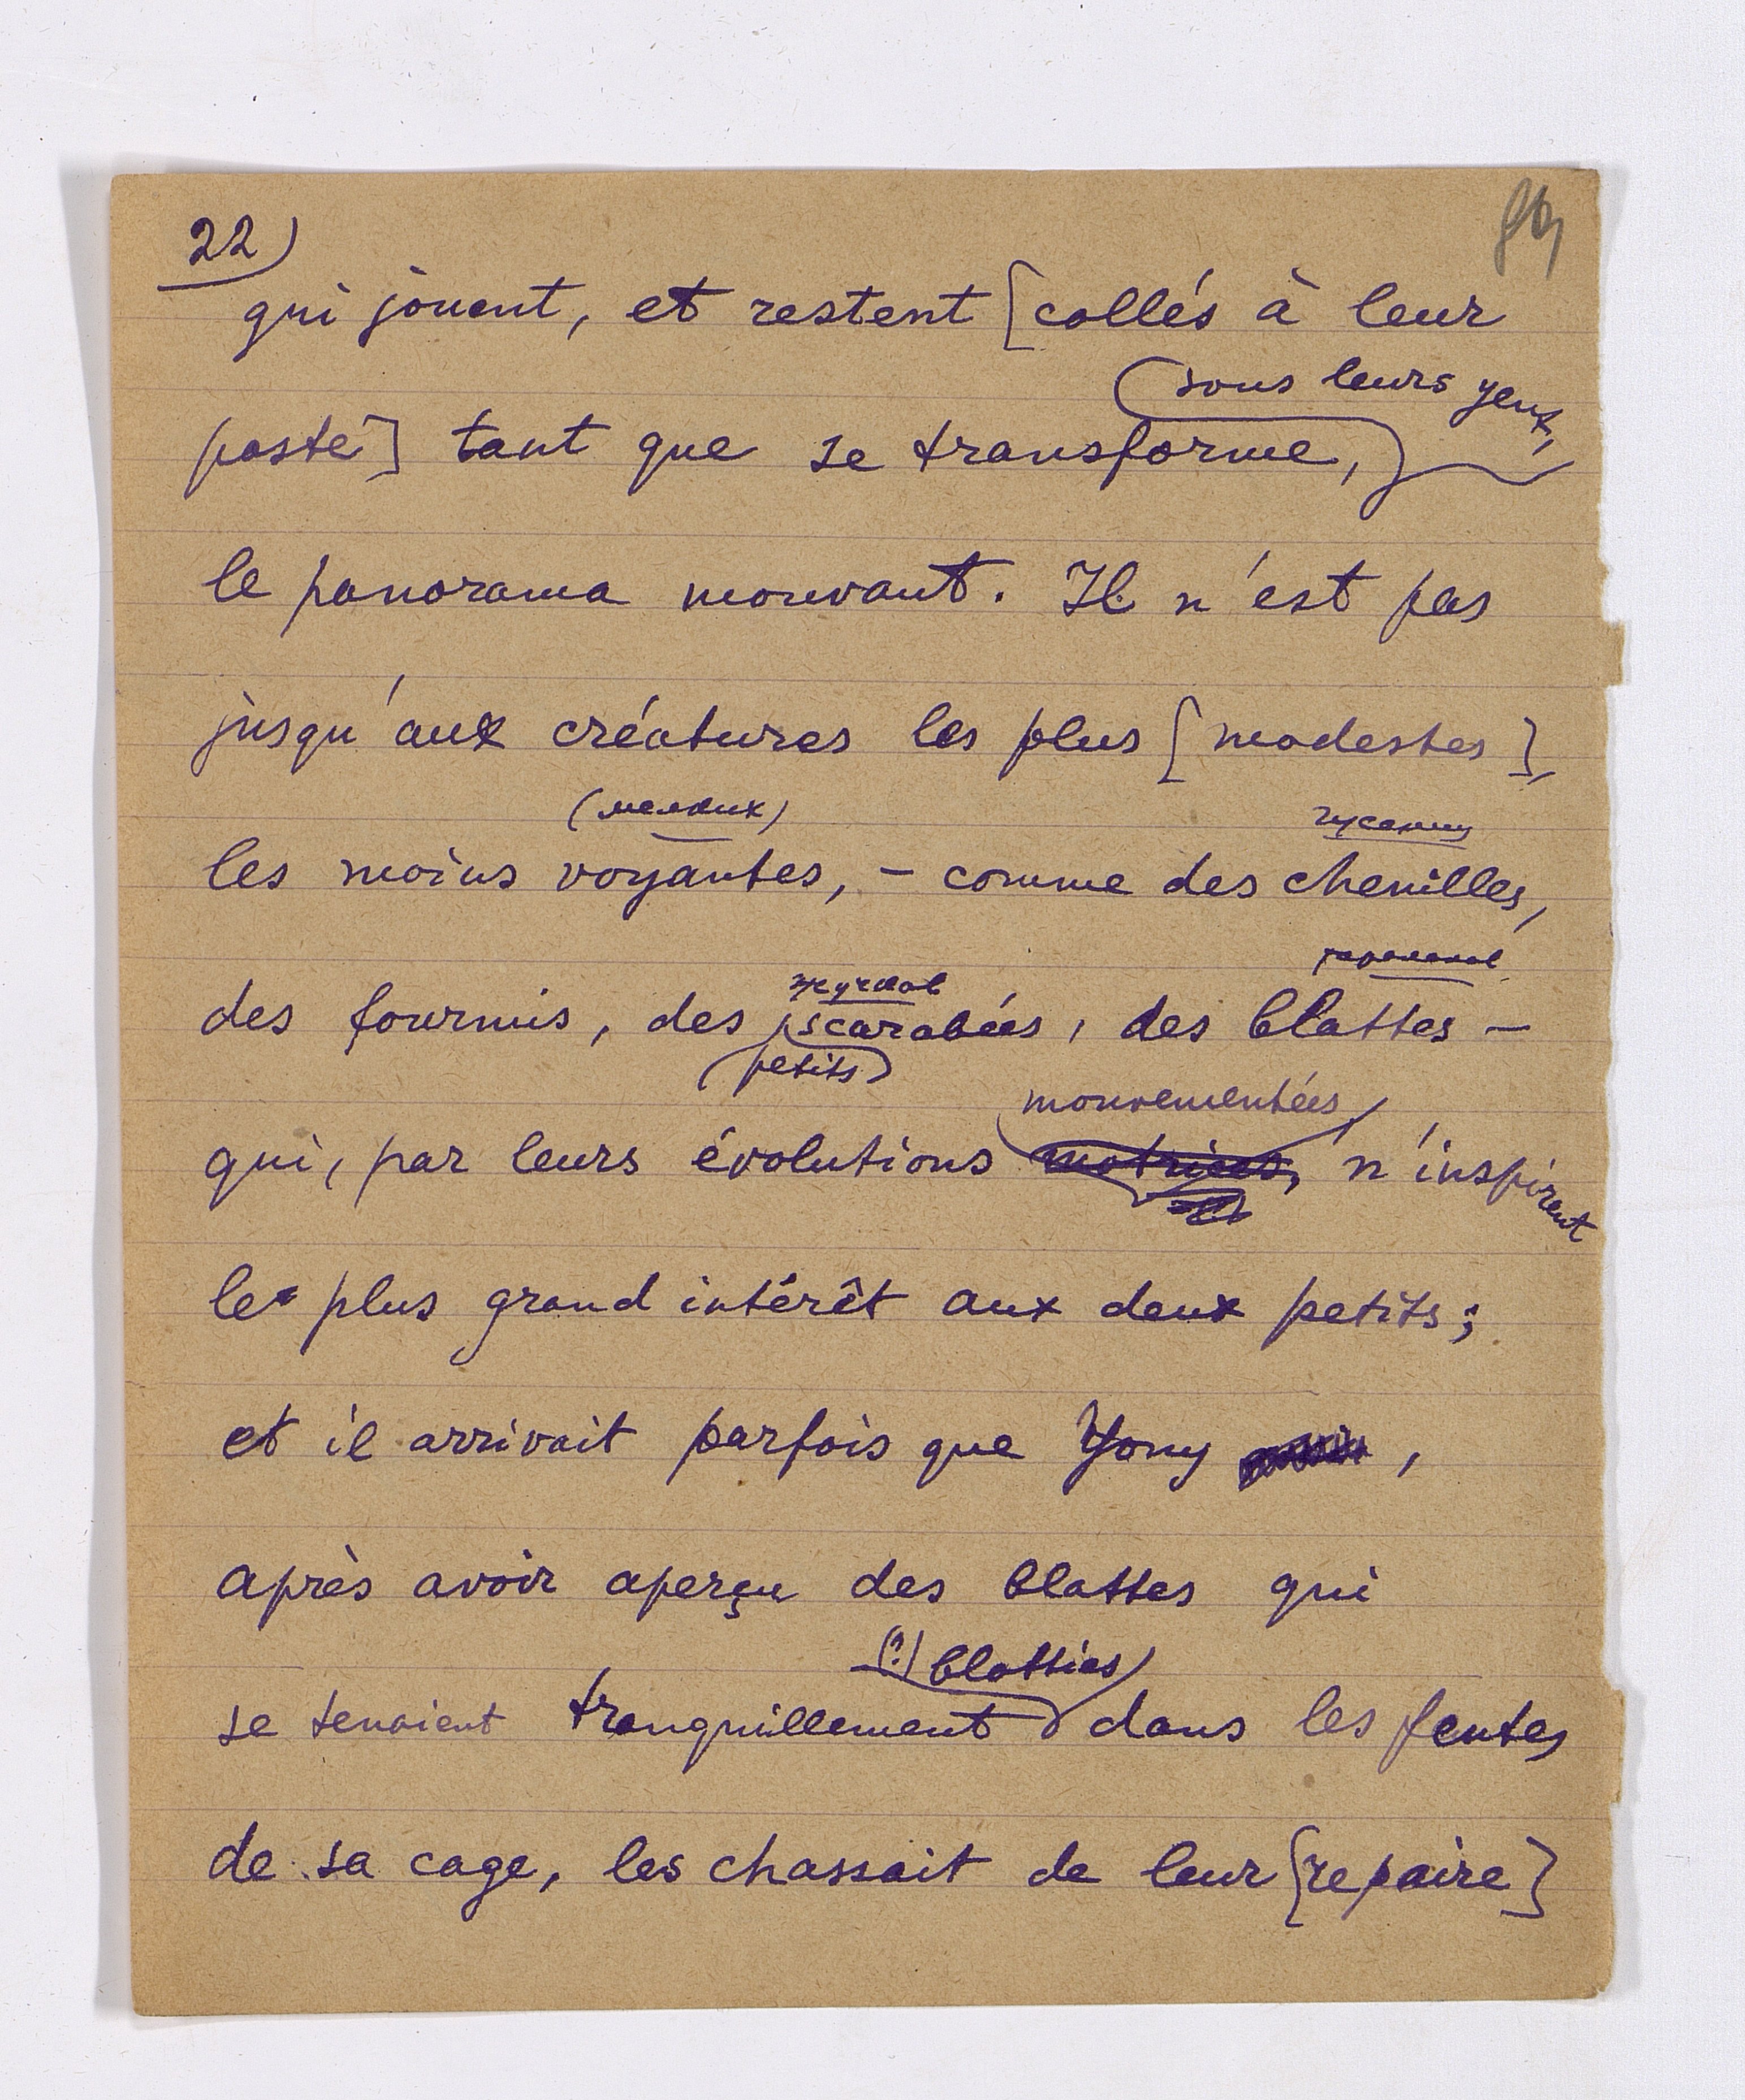 22)
qui jouent, et restent [collés à leur
(sous leurs yeux,
poste] tant que se transforme,
le panorama mouvant. Il n'est pas
jusqu'aux créatures les plus [modestes],
(мелких) гусениц
les moins voyantes, – comme des chenilles,
тараканов
жучков
des fourmis, des scarabées, des blattes –
(petits)
mouvementées
qui, par leurs évolutions motrices, n'inspirent
le plus grand intérêt aux deux petits;
et il arrivait parfois que Yony ,
après avoir aperçu des blattes qui
(?) blotties
se tenaient tranquillement dans les fentes
de sa cage, les chassait de leur [repaire]